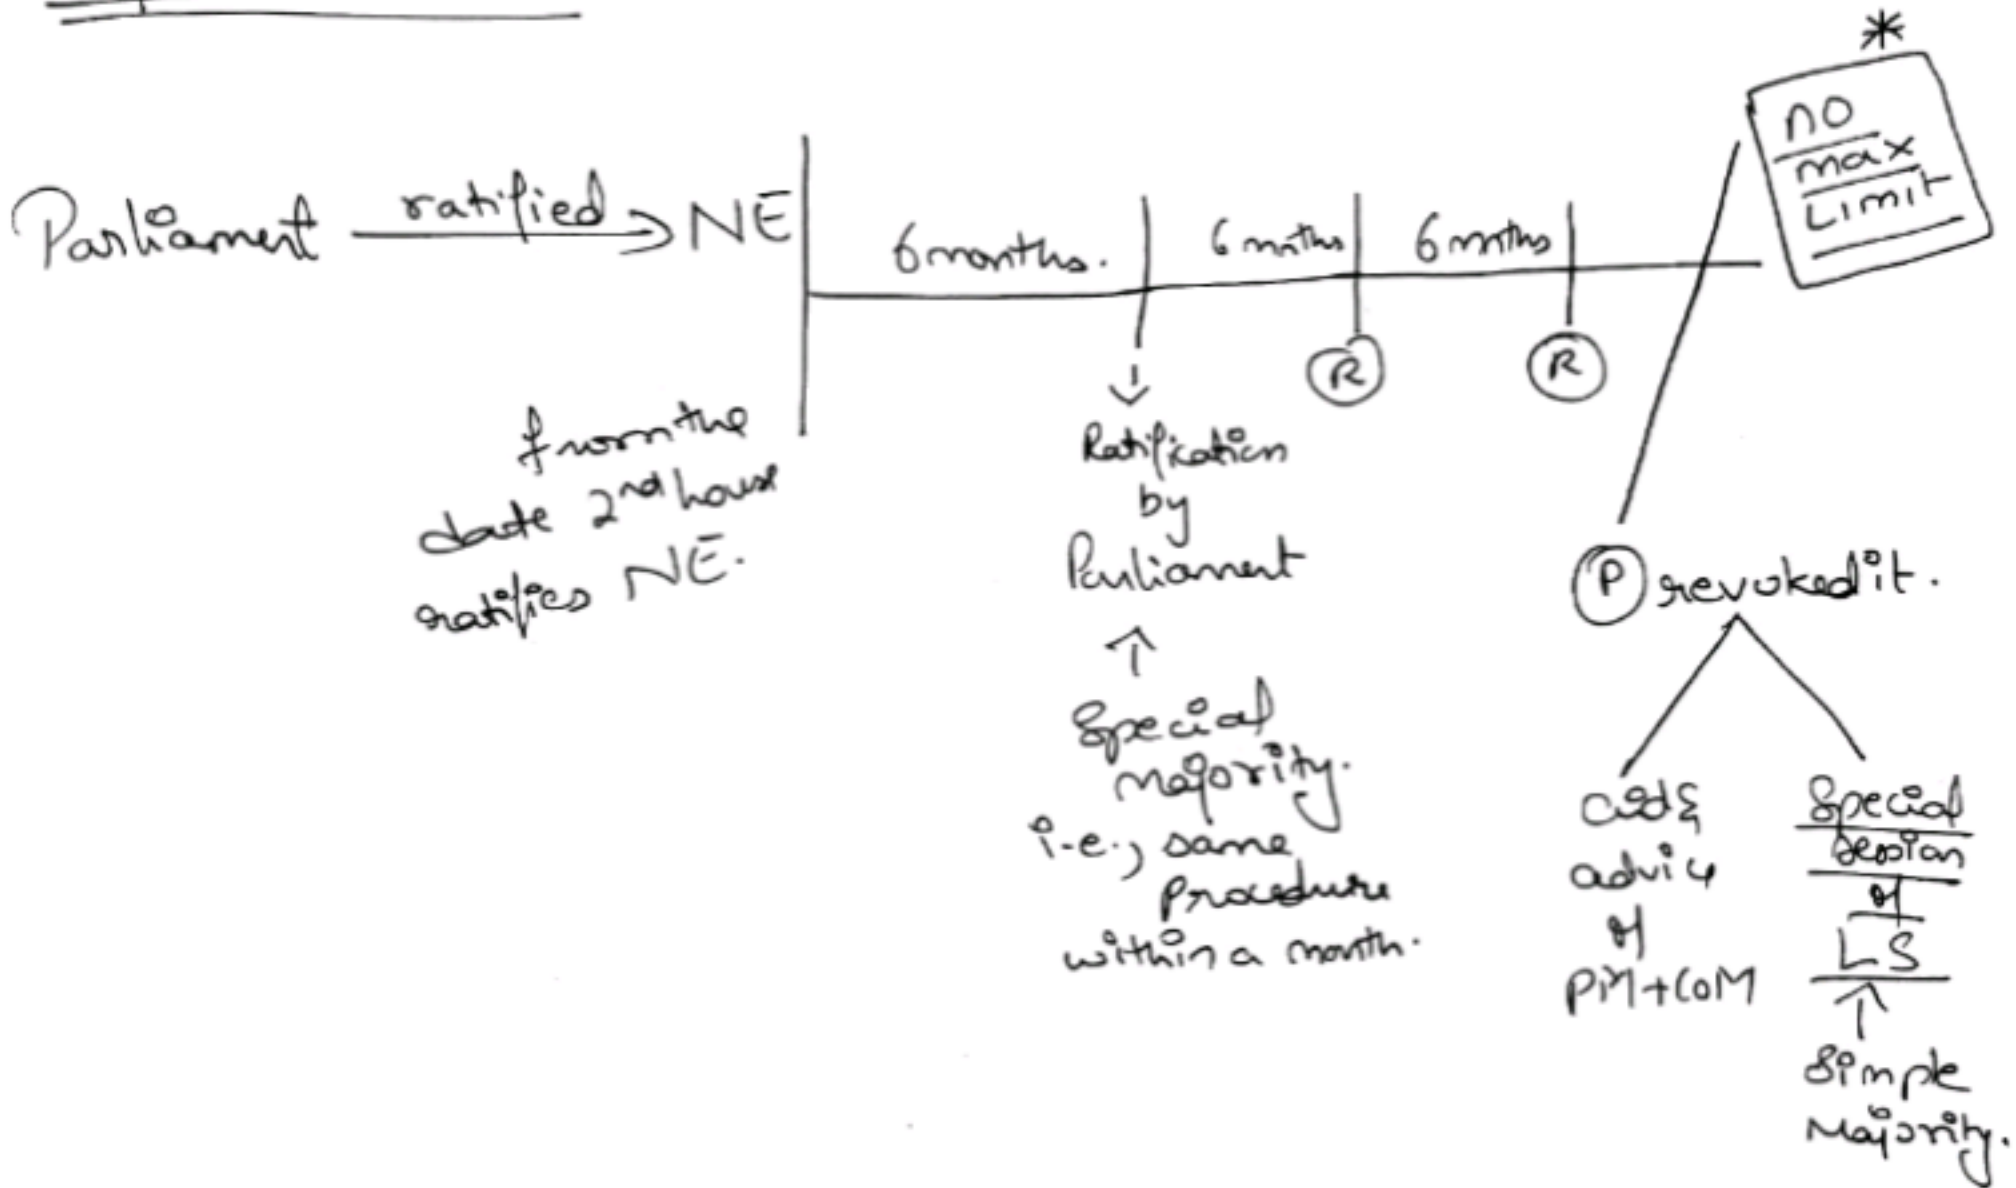 *
no
max
Limit
Parliament ratified → NE
6 months.
6 mnths
6 mnths
R
R
from the
date 2nd house
ratifies NE.
Ratification
by
Parliament
↑
Special
majority.
i.e., same
Procedure
within a month.
P revoked it.
aid &
advice
of
PM+COM
Special
session
of
LS
↑
Simple
Majority.